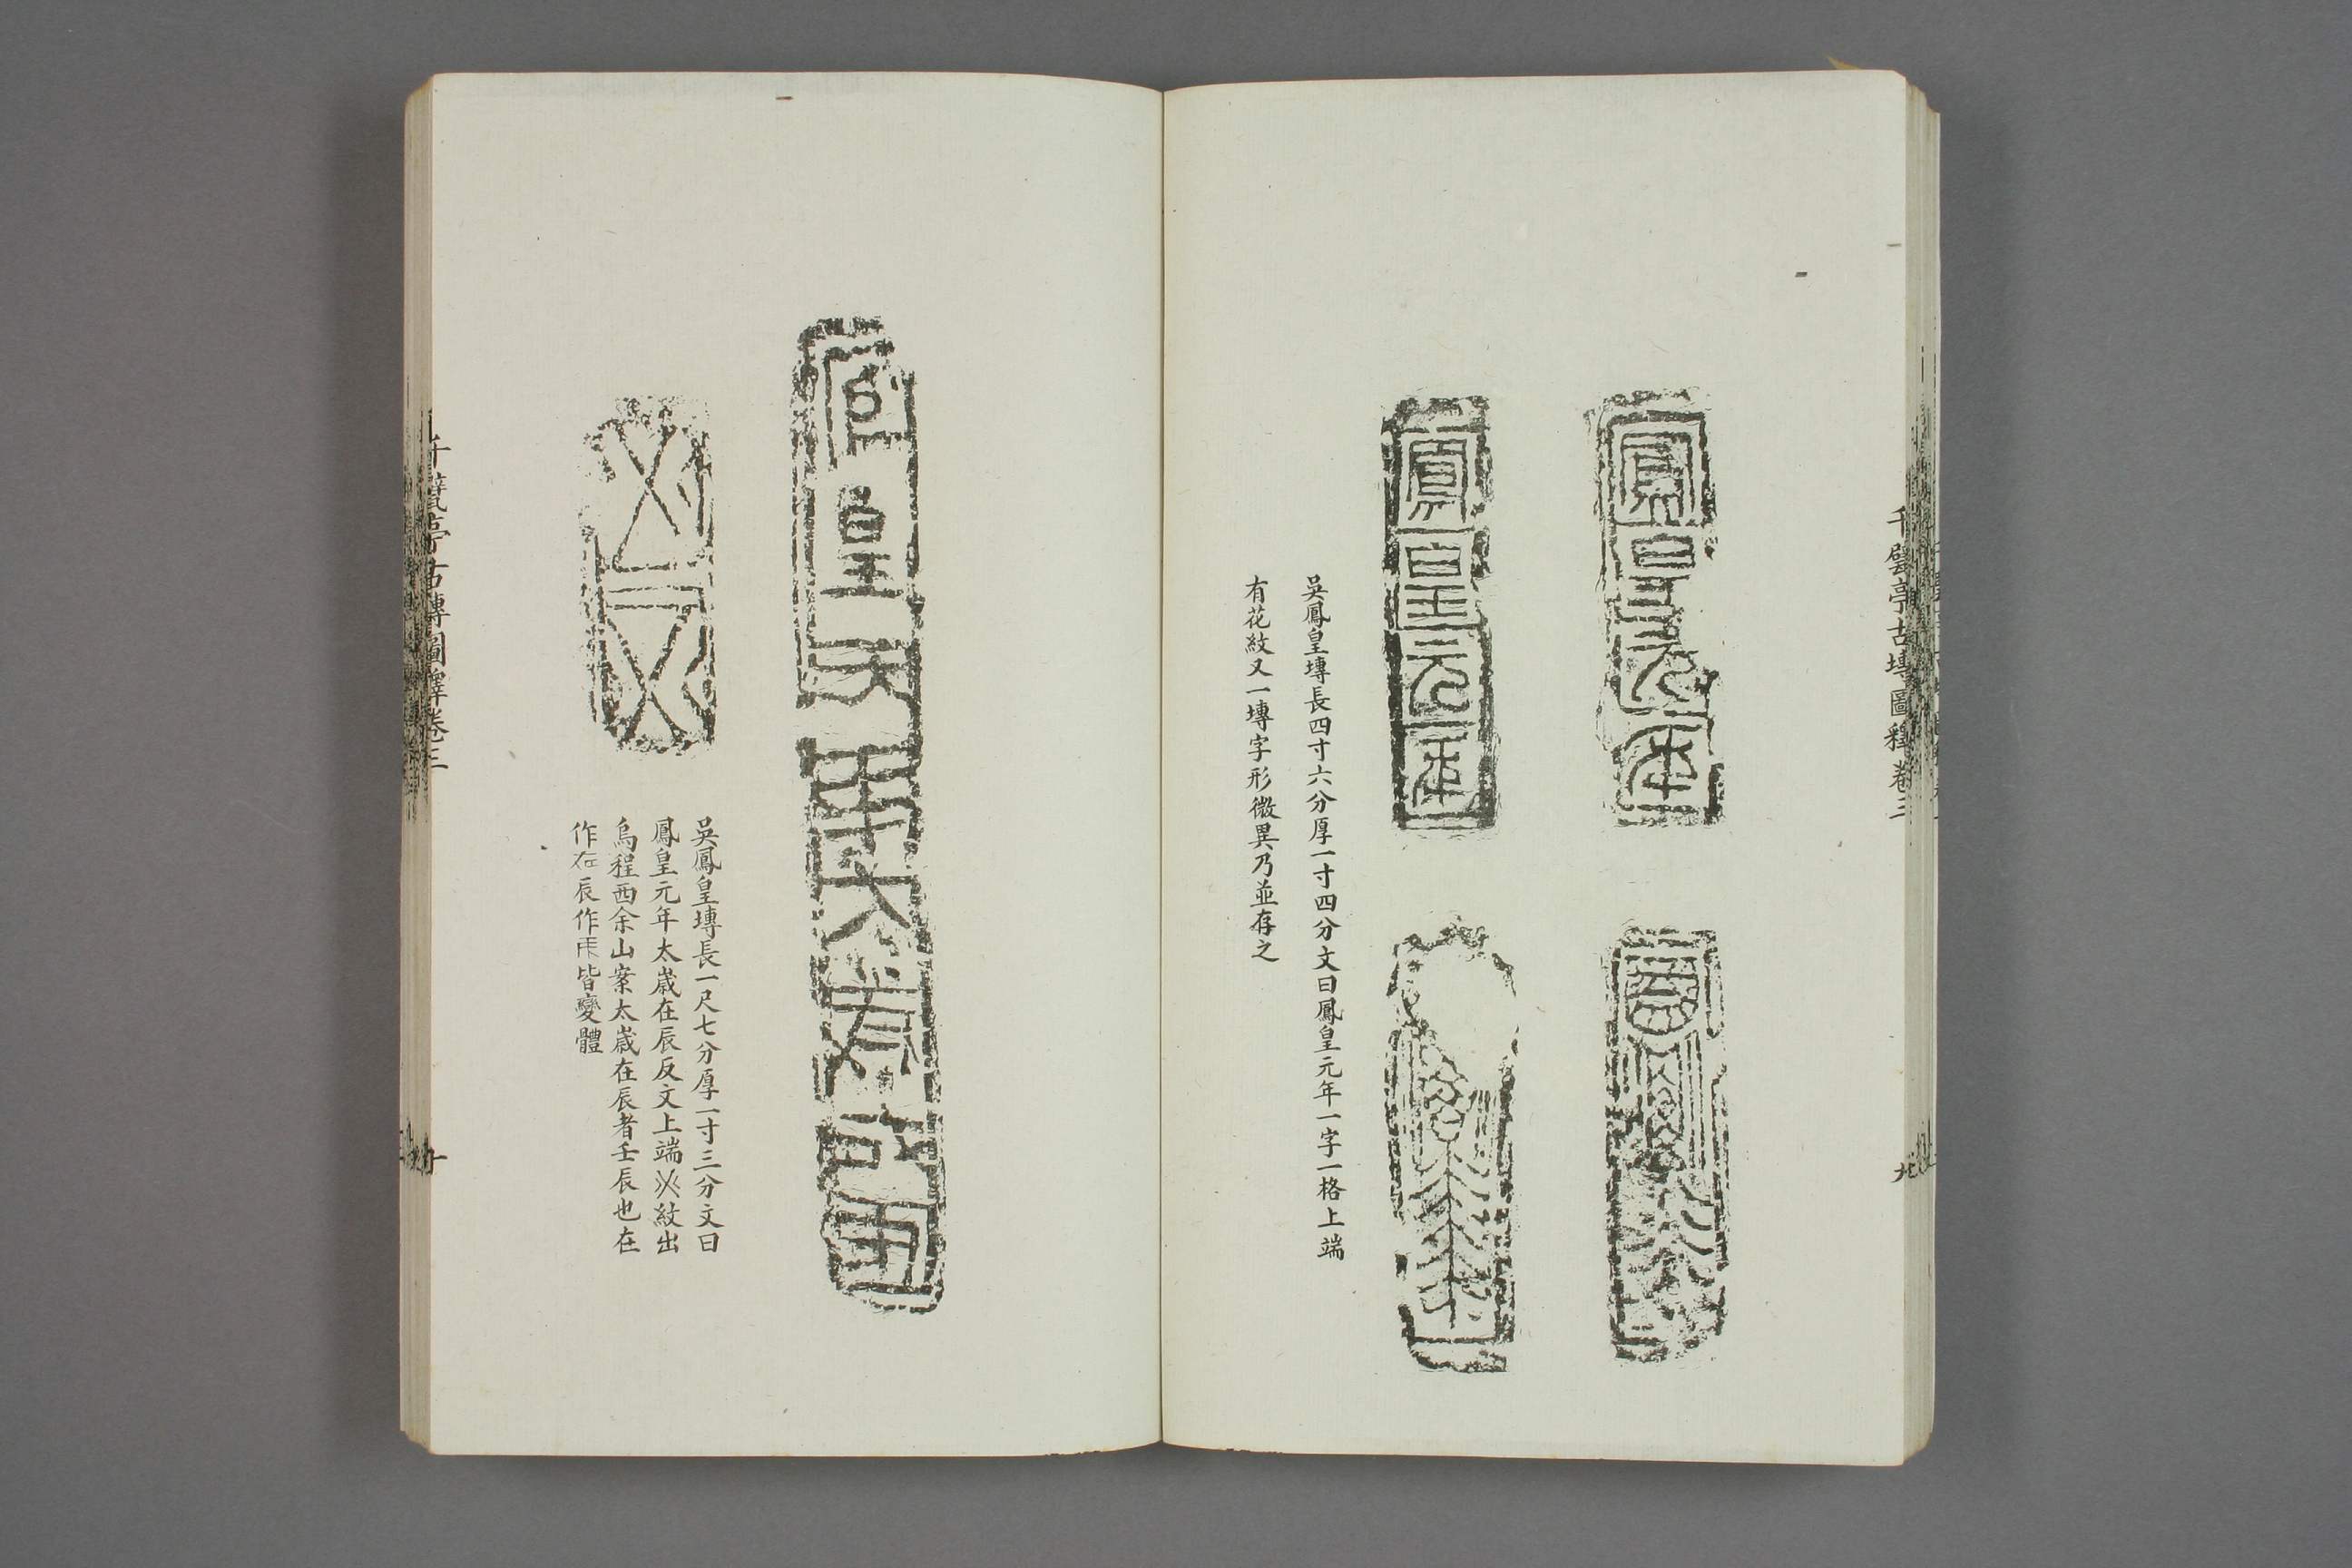 千甓亭古塼圖釋卷三
九
鳳皇元年
鳳皇元年
吳鳳皇塼長四寸六分厚一寸四分文曰鳳皇元年一字一格上端
有花紋又一塼字形微異乃並存之
吳鳳皇塼長一尺七分厚一寸三分文曰
鳳皇元年太歲在辰反文上端紋出
烏程西余山案太歲在辰者壬辰也在
作辰作皆變體
千甓亭古塼圖釋卷三
十